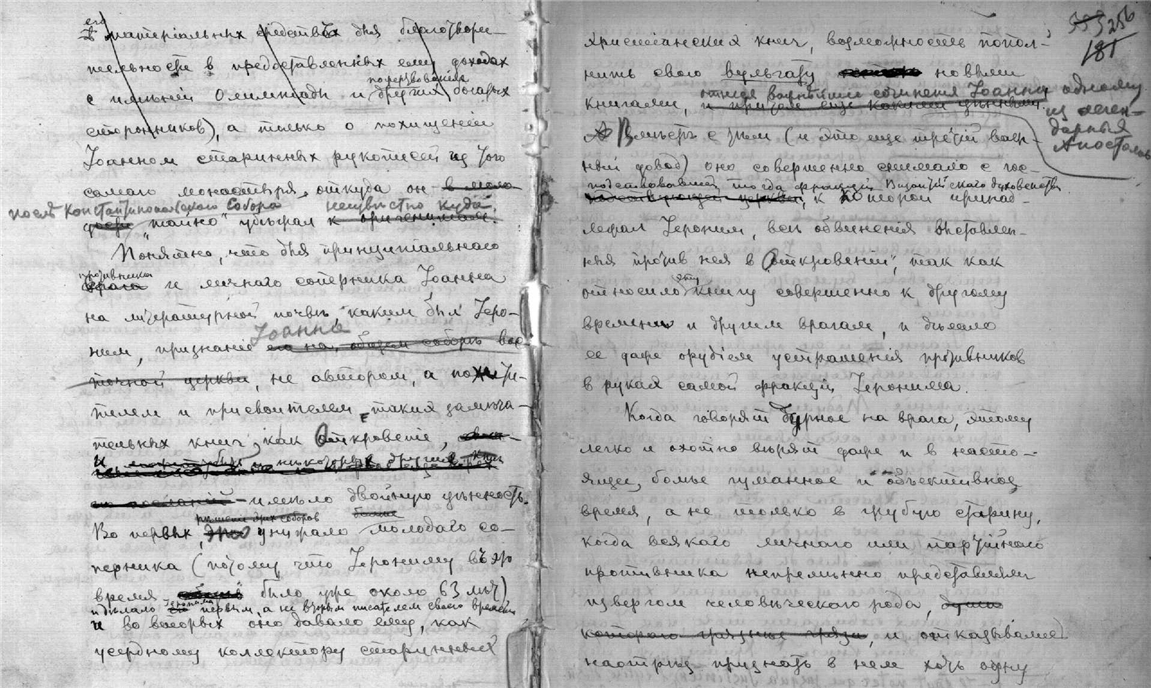 его
матеріальных средствъ для благотвори-
тельности в предоставленных ему доходах
пожертвованіях
с имѣній Олимпіады и других богатых
сторонников), а только о похищеніи
Іоанном старинных рукописей из того
самаго монастыря, откуда он
послѣ Константинопольскаго Собора неизвѣстно куда
"тайно" убѣжал к
Понятно, что для принципіальнаго
противника
врага и личнаго соперника Іоанна
на литературной почвѣ каким был Іеро-
Іоанна
ним, признаніе его на, соборѣ вос-
точной церкви, не автором, а похити-
телем и присвоителем таких замѣча-
тельных книг, как Откровеніе,
имѣло двойную цѣнность.
больше
Во первых, это унижало молодаго со-
перника (потому что Іерониму въ это
время было уже около 63 лѣт)
и дѣлало Іеронима первым, а не вторым писателем своего времени
и во вторых оно давало ему, как
усердному коллектору старинных
256
181
христіанских книг, возможность попол-
нить свою вульгату новыми
Іоанна одному
книгами, и притом еще
из леген-
дарных
Апостолов
Вмѣстѣ с тѣм (и это еще третій важ-
ный довод) оно совершенно снимало с гос-
подствовавшей тогда фракціи Византійскаго духовенства
к которой принад-
лежал Іероним, всѣ обвиненія выставлен-
ныя против нея в Откровеніи, так как
эту
относило книгу совершенно к другому
времени и другим врагам, и дѣлало
ее даже орудіем устрашенія противников
в руках самой фракціи Іеронима.
Когда говорят дурное на врага, этому
легко и охотно вѣрят даже и в насто-
ящее, болѣе гуманное и объективное
время, а не только в грубую старину,
когда всякаго личнаго или партійнаго
противника непремѣнно представляли
извергом человѣческаго рода,
котораго и отказывались
наотрѣз признать в нем хоть одну